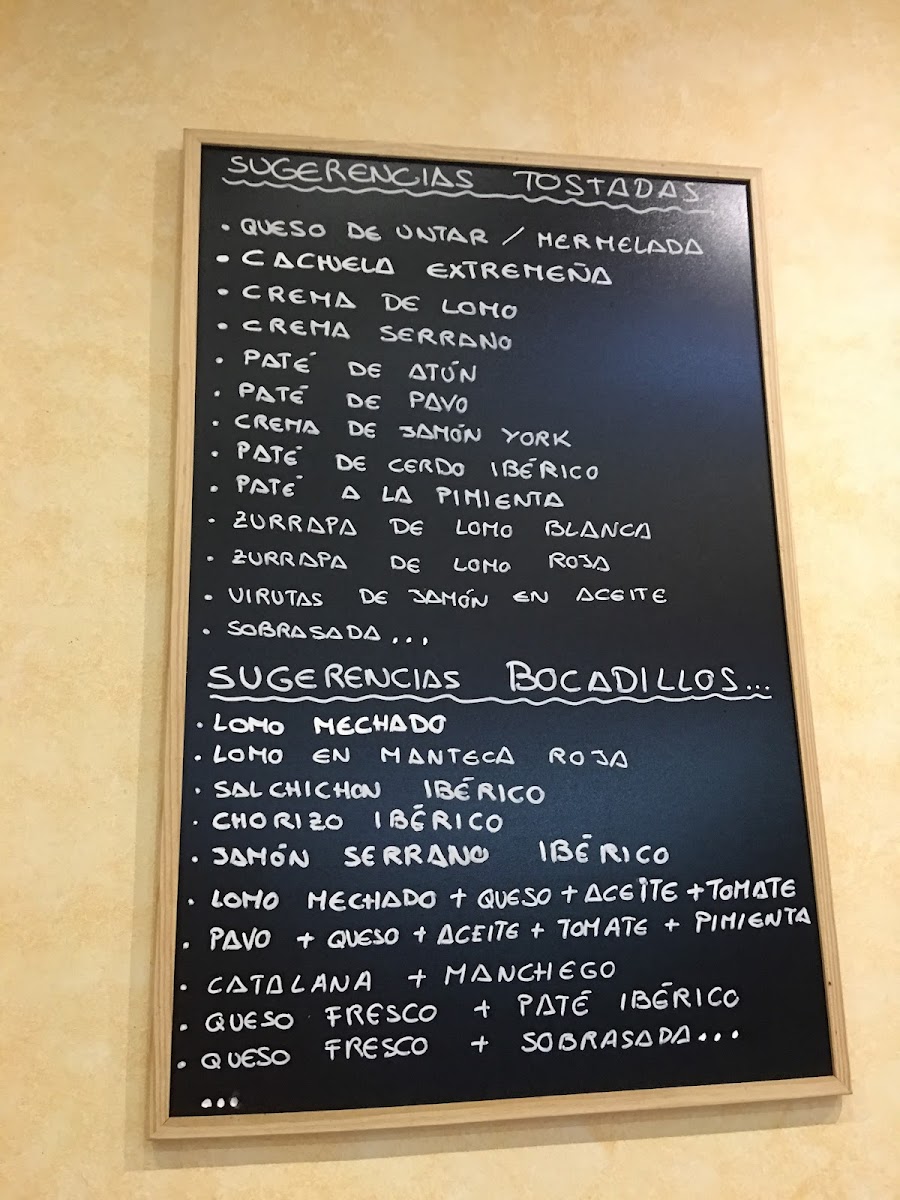 SUGERENCIAS TOSTADAS
• QUESO DE UNTAR / MERMELADA
• CACHUELA EXTREMEÑA
• CREMA DE LOMO
• CREMA SERRANO
• PATÉ DE ATÚN
• PATÉ DE PAVO
• CREMA DE JAMÓN YORK
• PATÉ DE CERDO IBÉRICO
• PATÉ A LA PIMIENTA
• ZURRAPA DE LOMO BLANCA
• ZURRAPA DE LOMO ROJA
• VIRUTAS DE JAMÓN EN ACEITE
• SOBRASADA...
SUGERENCIAS BOCADILLOS...
• LOMO MECHADO
• LOMO EN MANTECA ROJA
• SALCHICHON IBÉRICO
• CHORIZO IBÉRICO
• JAMÓN SERRANO IBÉRICO
• LOMO MECHADO + QUESO + ACEITE + TOMATE
• PAVO + QUESO + ACEITE + TOMATE + PIMIENTA
• CATALANA + MANCHEGO
• QUESO FRESCO + PATÉ IBÉRICO
• QUESO FRESCO + SOBRASADA...
...